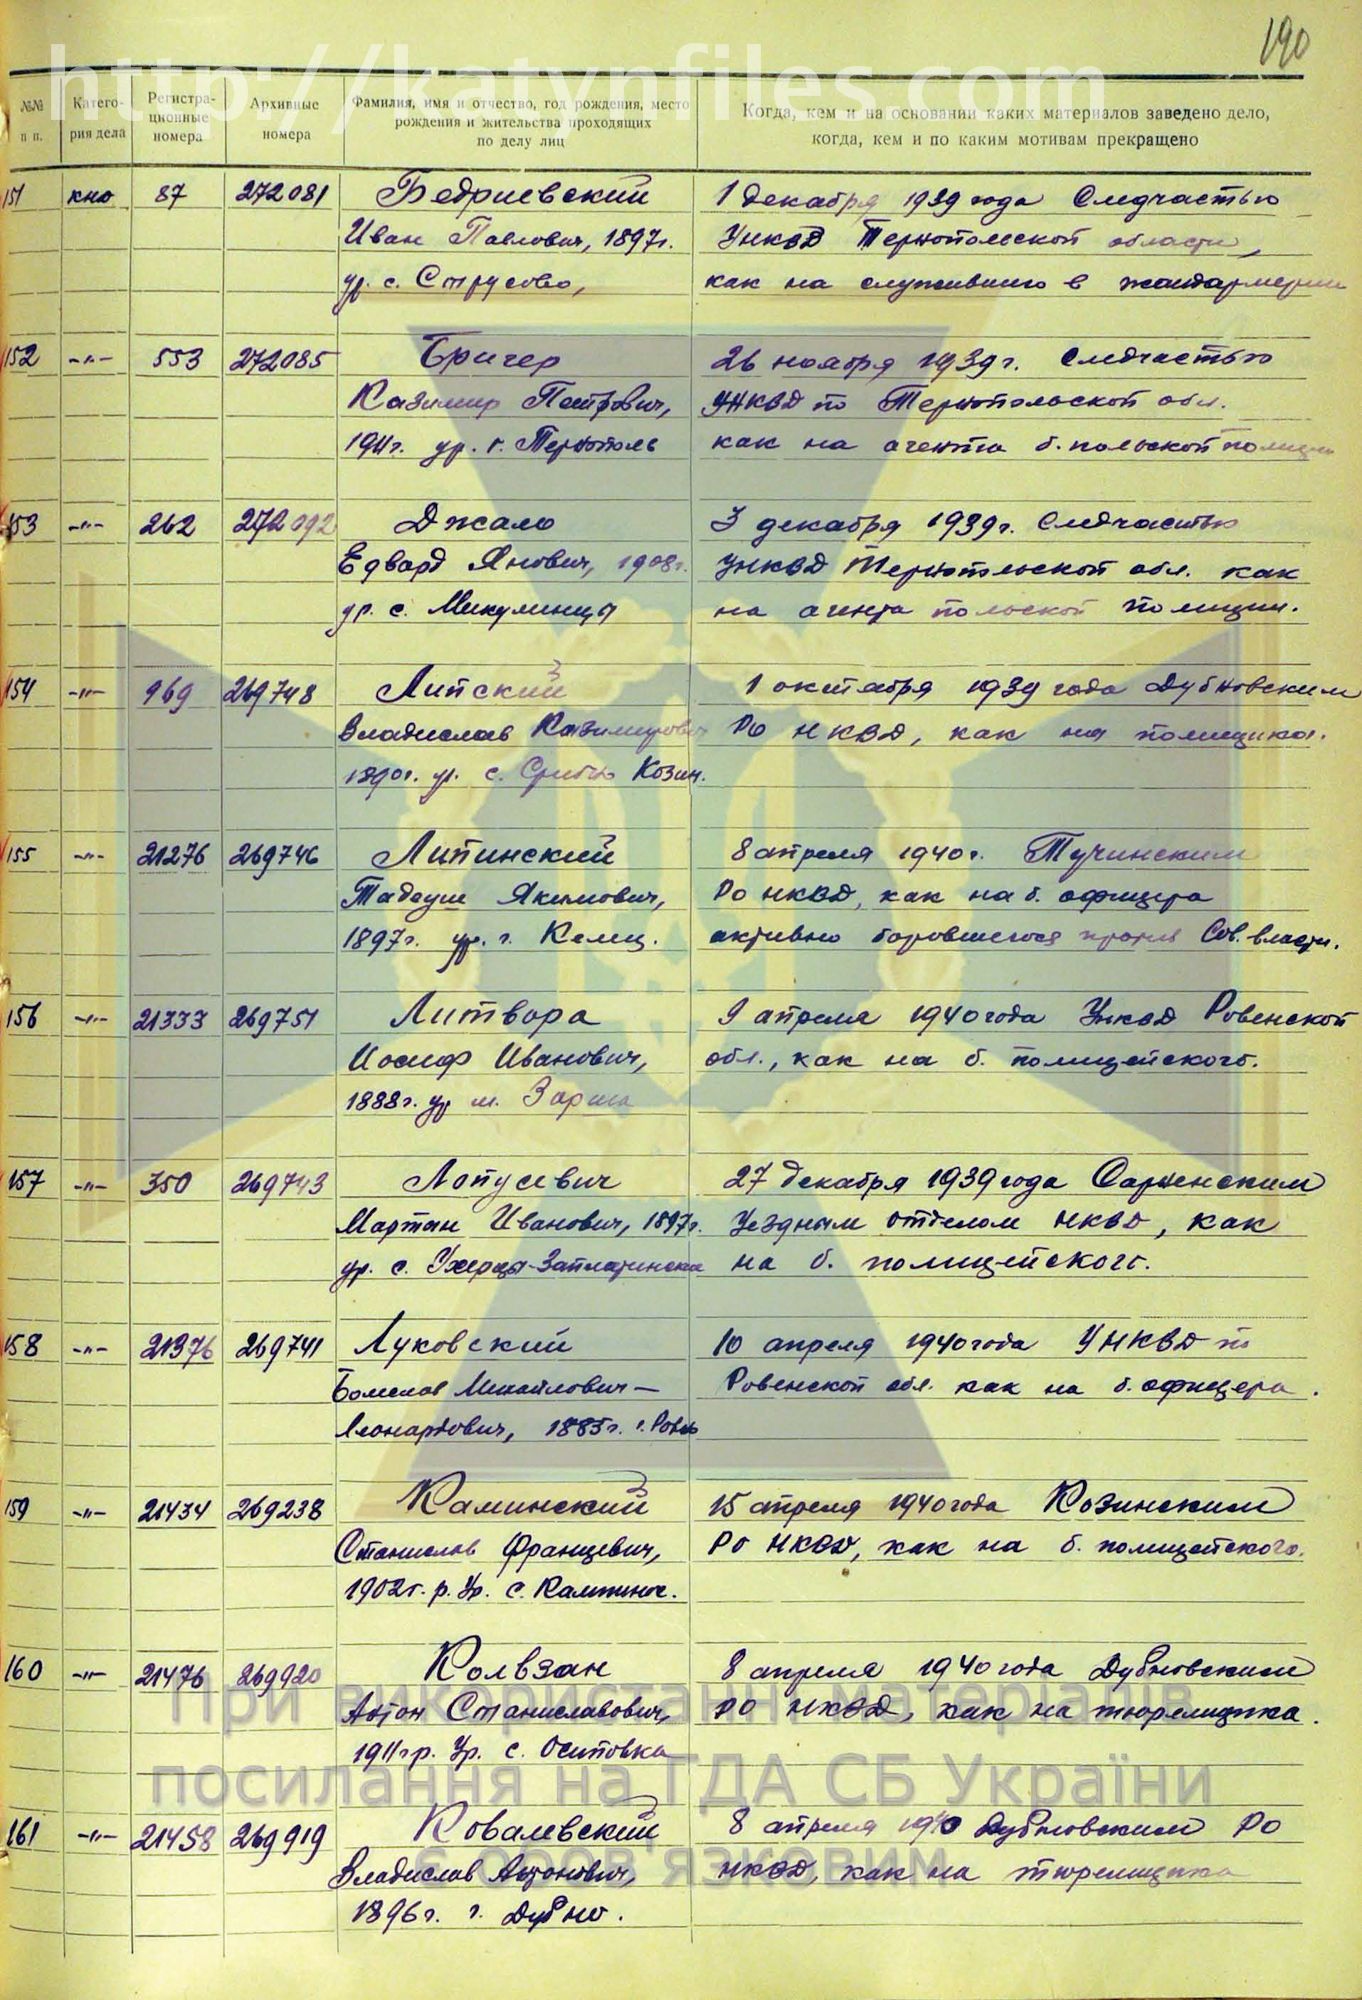 190
http://katynfiles.com
№№ п п.
Катего- рия дела
Регистра- ционные номера
Архивные номера
Фамилия, имя и отчество, год рождения, место рождения и жительства проходящих по делу лиц
Когда, кем и на основании каких материалов заведено дело, когда, кем и по каким мотивам прекращено
151 кно 87 272081 Бедриевский 1 декабря 1939 года Следчастью
Иван Павлович, 1897г. УНКВД Тернопольской области,
ур. с. Струсово, как на служившего в жандармерии
152 -"- 553 272085 Бричер 26 ноября 1939г. Следчастью
Казимир Петрович, УНКВД по Тернопольской обл.
1911г. ур. г. Тернополь как на агента б. польской полиции
153 -"- 262 272092 Джало 3 декабря 1939г. Следчастью
Едвард Янович, 1908г. УНКВД Тернопольской обл. как
ур. с. Микулинцы на агента польской полиции.
154 -"- 969 269748 Липский 1 октября 1939 года Дубновским
Владислав Казимирович РО НКВД, как на полицика.
1890г. ур. с. Срибно Козин.
155 -"- 21276 269746 Липинский 8 апреля 1940г. Тучинским
Тадеуш Якимович, РО НКВД, как на б. офицера
1897г. ур. г. Келец. активно боровшегося против Сов. власти.
156 -"- 21333 269751 Литвора 9 апреля 1940 года УНКВД Ровенской
Иосиф Иванович, обл., как на б. полицейского.
1888г. ур м.
157 -"- 350 269743 Лопусевич 27 декабря 1939 года Сарненским
Мартин Иванович, 1897г. Уездным отделом НКВД, как
ур. с. на б. полицейского.
158 -"- 21376 269741 Луковский 10 апреля 1940 года УНКВД по
Болеслав Михайлович- Ровенской обл. как на б. офицера.
Леонардович, 1885г. г. Ровно
159 -"- 21434 269238 Каминский 15 апреля 1940 года Козинским
Станислав Францевич, РО НКВД, как на б. полицейского.
1902г. р. Ур. с.
160 -"- 21476 269920 Колвзан 8 апреля 1940 года Дубновским
Антон Станиславович, РО НКВД, как на тюремщика.
1911г р. Ур. с. Осиповка
161 -"- 21458 269919 Ковалевский 8 апреля 1940 Дубновским РО
Владислав Антонович, НКВД, как на тюремщика
1896г. г. Дубно.
При використанні матеріалів
посилання на ГДА СБ України
є обов'язковим